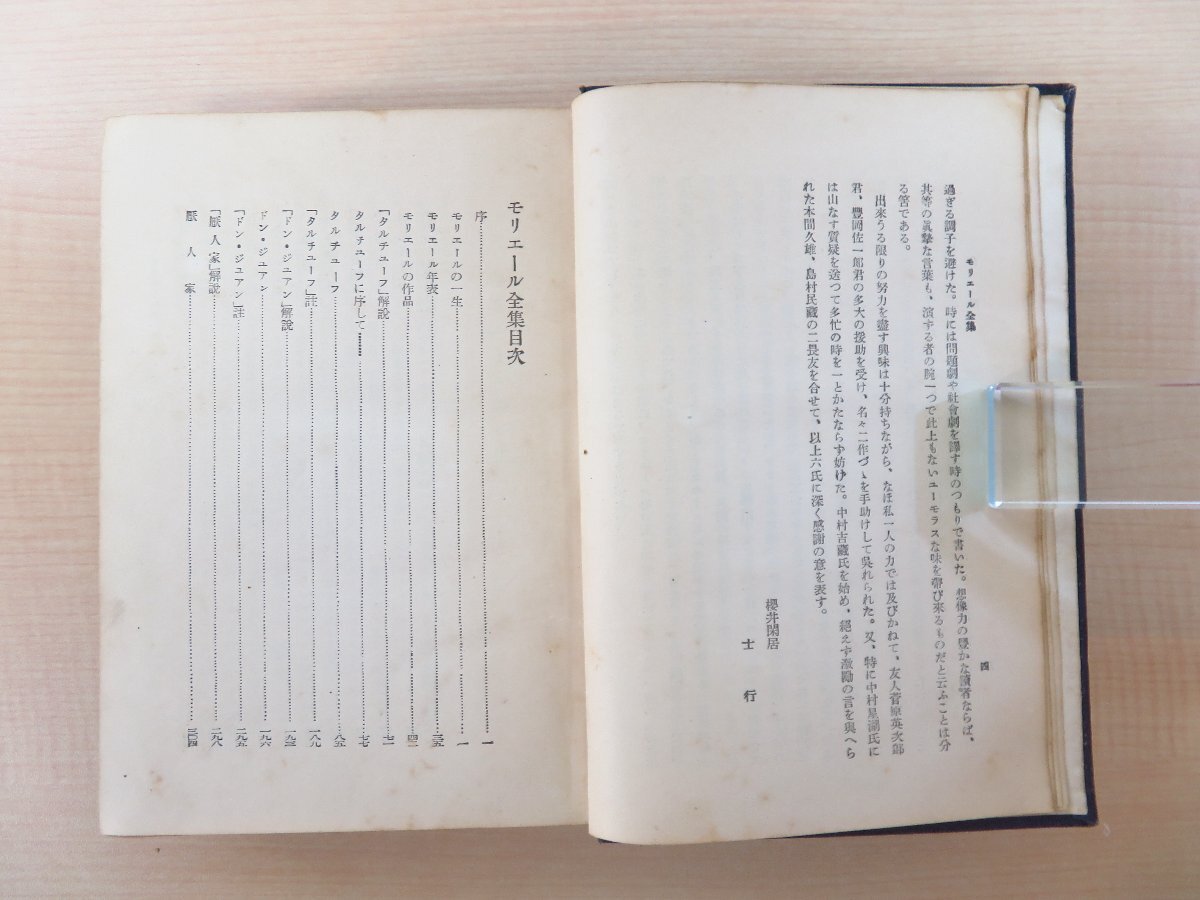 モリエール全集
四
過ぎる調子を避けた。時には問題劇や社會劇を譯す時のつもりで書いた。想像力の豐かな讀者ならば、
其等の眞摯な言葉も、演ずる者の腕一つで此上もないユーモラスな味を帶び來るものだと云ふことは分
る筈である。
出來うる限りの努力を盡す興味は十分持ちながら、なほ私一人の力では及びかねて、友人菅原英次郎
君、豐岡佐一郎君の多大の援助を受け、名々二作づゝを手助けして呉れられた。又、特に中村星湖氏に
は山なす質疑を送つて多忙の時を一とかたならず妨けた。中村吉藏氏を始め、絕えず激勵の言を與へら
れた本間久雄、島村民藏の二畏友を合せて、以上六氏に深く感謝の意を表す。
櫻井閑居
士行
モリエール全集目次
序…………一
モリエールの一生…………一
モリエール年表…………三五
モリエールの作品…………四二
「タルチューフ」解說…………七一
タルチューフに序して…………七七
タルチューフ…………八五
「タルチューフ」註…………一八九
「ドン・ジュアン」解說…………一九三
ドン・ジュアン…………一九六
「ドン・ジュアン」註…………二九五
「厭人家」解說…………二九八
厭人家…………三〇四